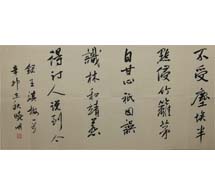 不受塵埃半
點侵竹籬茅
自甘心祇因誤
識林和靖惹
得詩人說到今
錄王淇梅
秋